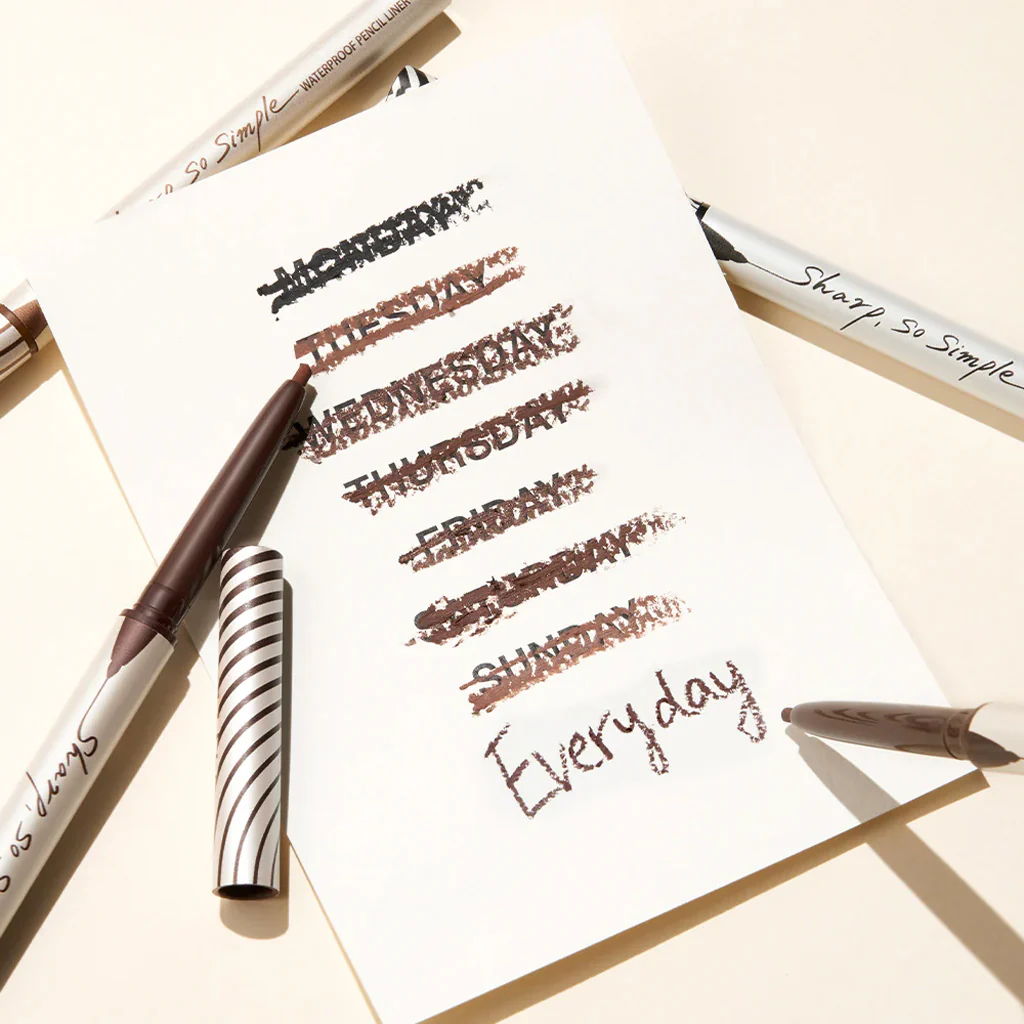 Sharp, So Simple WATERPROOF PENCIL LINER
MONDAY
TUESDAY
WEDNESDAY
THURSDAY
FRIDAY
SATURDAY
SUNDAY
Everyday
Sharp, So Simple
Sharp, So